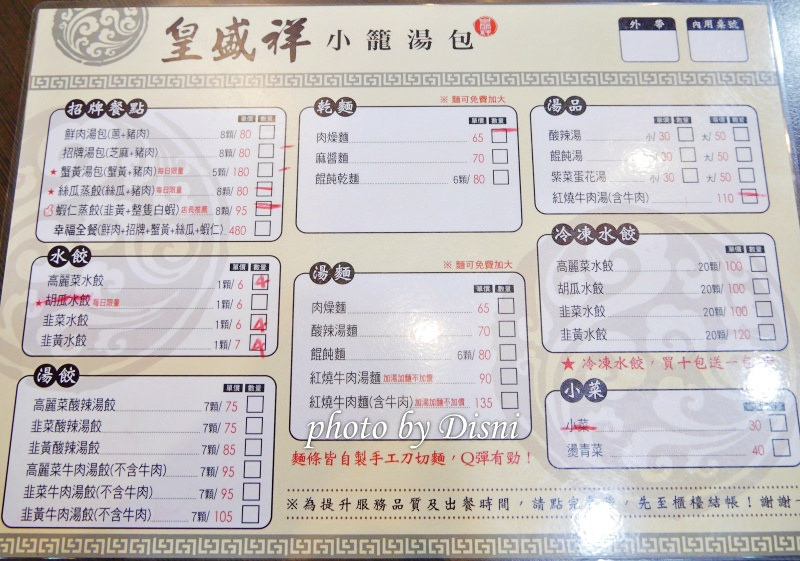 皇盛祥 小籠湯包
外帶
內用桌號
招牌餐點
單價 數量
鮮肉湯包(蔥+豬肉) 8顆/ 80
招牌湯包(芝麻+豬肉) 8顆/ 80
★蟹黃湯包(蟹黃+豬肉)每日限量 5顆/ 180
★絲瓜蒸餃(絲瓜+豬肉)每日限量 8顆/ 80
蝦仁蒸餃(韭黃+整隻白蝦)店長推薦 8顆/ 95
幸福全餐(鮮肉+招牌+蟹黃+絲瓜+蝦仁) 480
水餃
單價 數量
高麗菜水餃 1顆/ 6 4
★胡瓜水餃每日限量 1顆/ 6
韭菜水餃 1顆/ 6 4
韭黃水餃 1顆/ 7 4
湯餃
單價 數量
高麗菜酸辣湯餃 7顆/ 75
韭菜酸辣湯餃 7顆/ 75
韭黃酸辣湯餃 7顆/ 85
高麗菜牛肉湯餃(不含牛肉) 7顆/ 95
韭菜牛肉湯餃(不含牛肉) 7顆/ 95
韭黃牛肉湯餃(不含牛肉) 7顆/ 105
乾麵
※ 麵可免費加大
單價 數量
肉燥麵 65
麻醬麵 70
餛飩乾麵 6顆/ 80
湯麵
※ 麵可免費加大
單價 數量
肉燥麵 65
酸辣湯麵 70
餛飩麵 6顆/ 80
紅燒牛肉湯麵 加湯加麵不加價 90
紅燒牛肉麵(含牛肉)加湯加麵不加價 135
麵條皆自製手工刀切麵，Q彈有勁！
湯品
單價 數量 單價 數量
酸辣湯 小/ 30 大/ 50
餛飩湯 小/ 30 大/ 50
紫菜蛋花湯 小/ 30 大/ 50
紅燒牛肉湯(含牛肉) 110
冷凍水餃
單價 數量
高麗菜水餃 20顆/ 100
胡瓜水餃 20顆/ 100
韭菜水餃 20顆/ 100
韭黃水餃 20顆/ 120
★ 冷凍水餃，買十包送一包
小菜
小菜 30
燙青菜 40
※為提升服務品質及出餐時間，請點完 先至櫃檯結帳！謝謝
photo by Disni